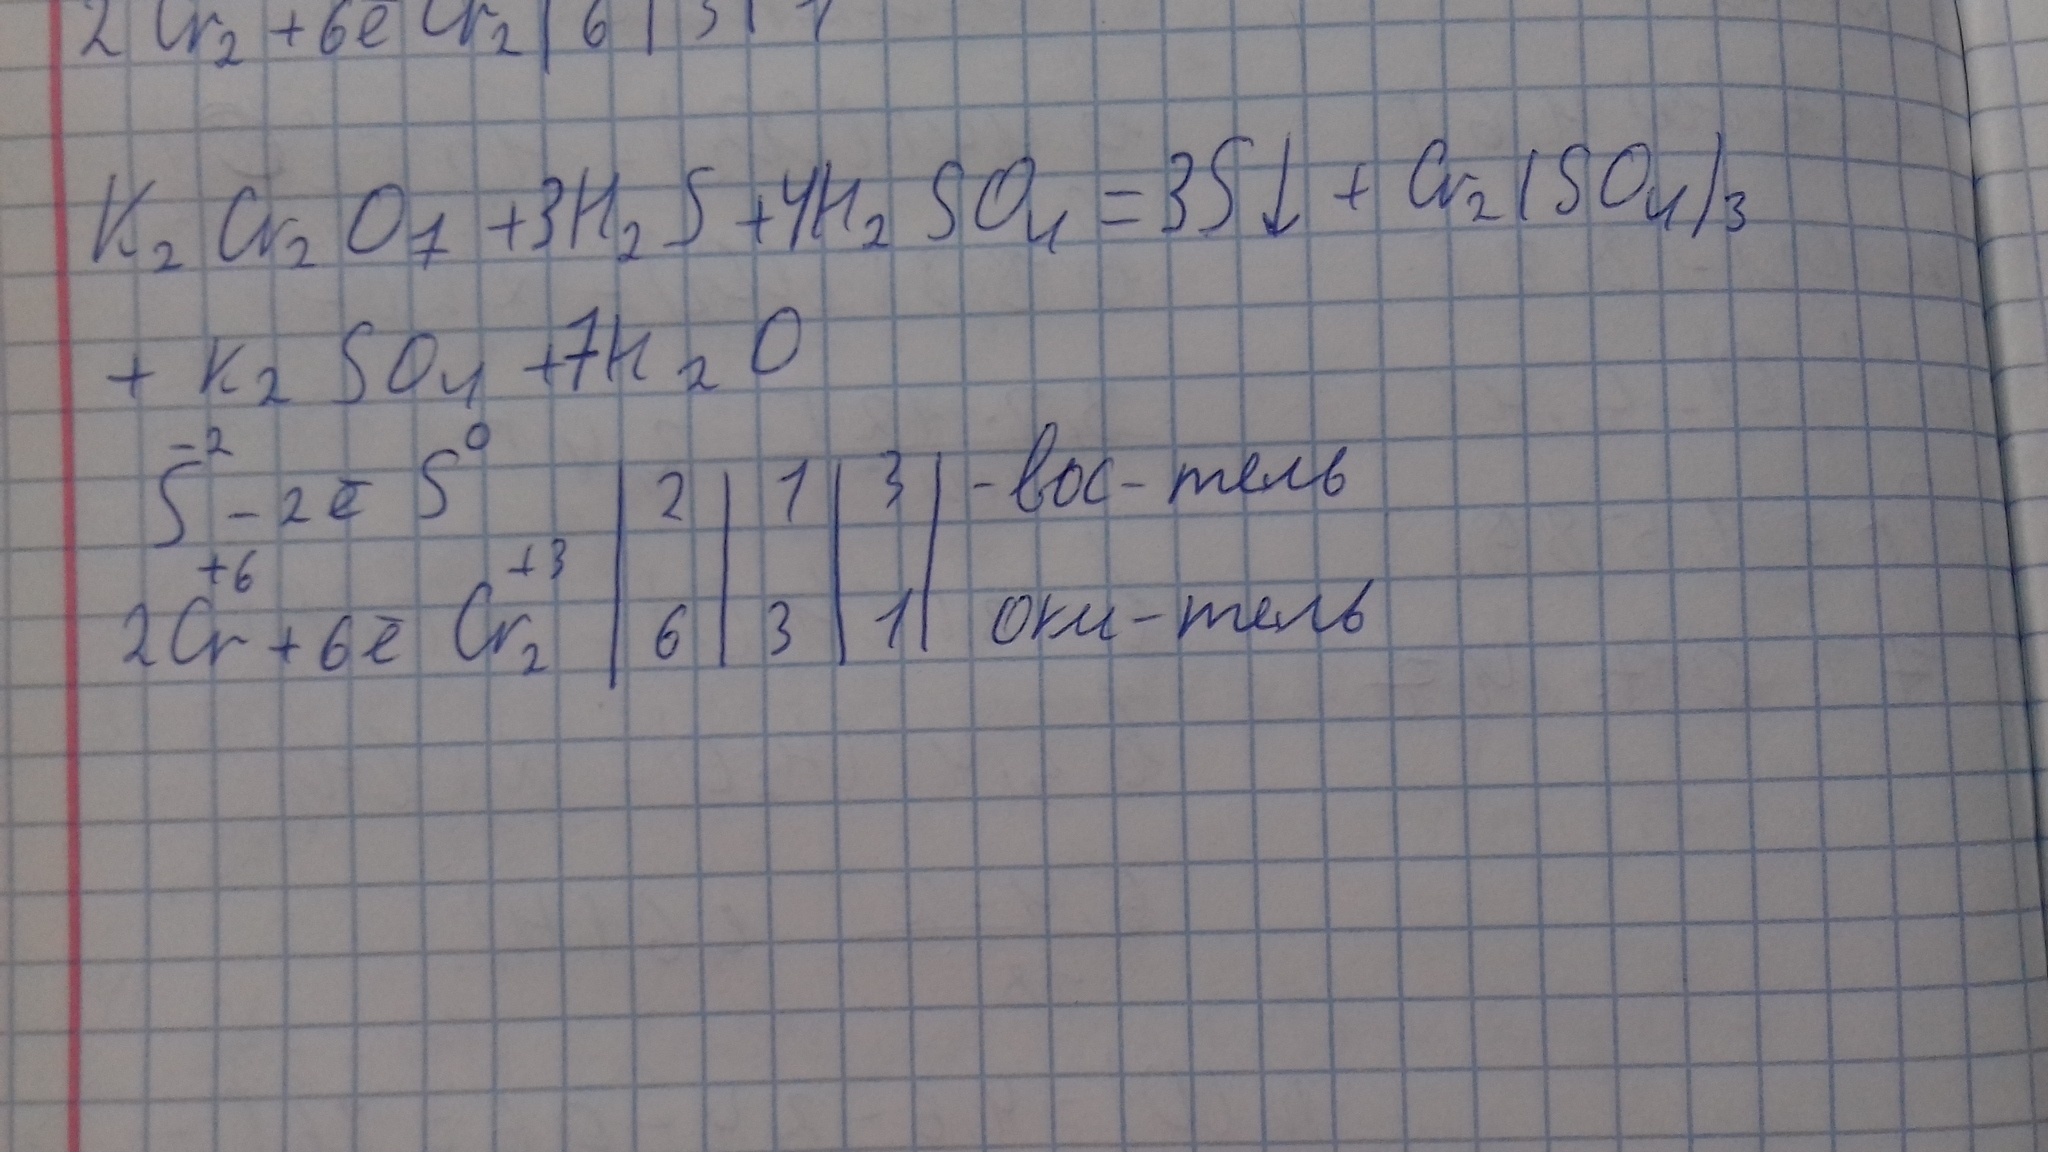 2 Cr₂ + 6ē Cr₂ | 6 | 3 | 1
K₂ Cr₂ O₇ + 3H₂ S + 4H₂ SO₄ = 3S↓ + Cr₂ (SO₄)₃
+ K₂ SO₄ + 7H₂ O
S⁻² - 2ē S⁰ | 2 | 1 | 3 | - вос-тель
2Cr⁺⁶ + 6ē Cr₂⁺³ | 6 | 3 | 1 | оки-тель